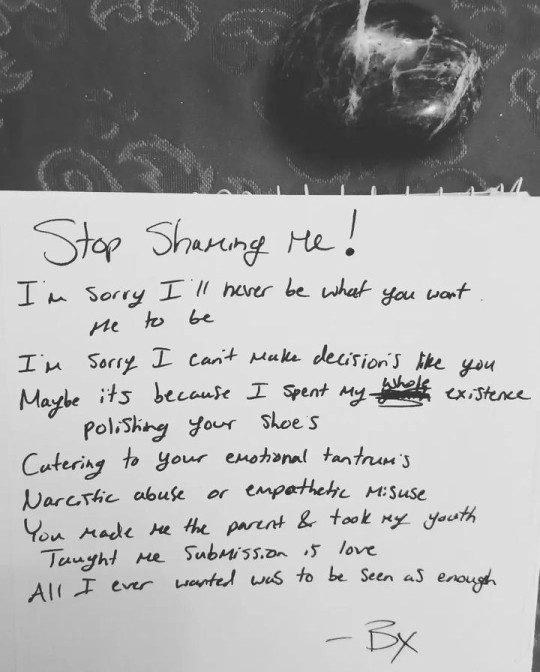 Stop Shaming Me!
I'm sorry I'll never be what you want
me to be
I'm sorry I can't make decision's like you
Maybe its because I spent my whole existence
polishing your shoe's
Catering to your emotional tantrum's
Narcistic abuse or empathetic misuse
You made me the parent & took my youth
Taught me submission is love
All I ever wanted was to be seen as enough
- Bx